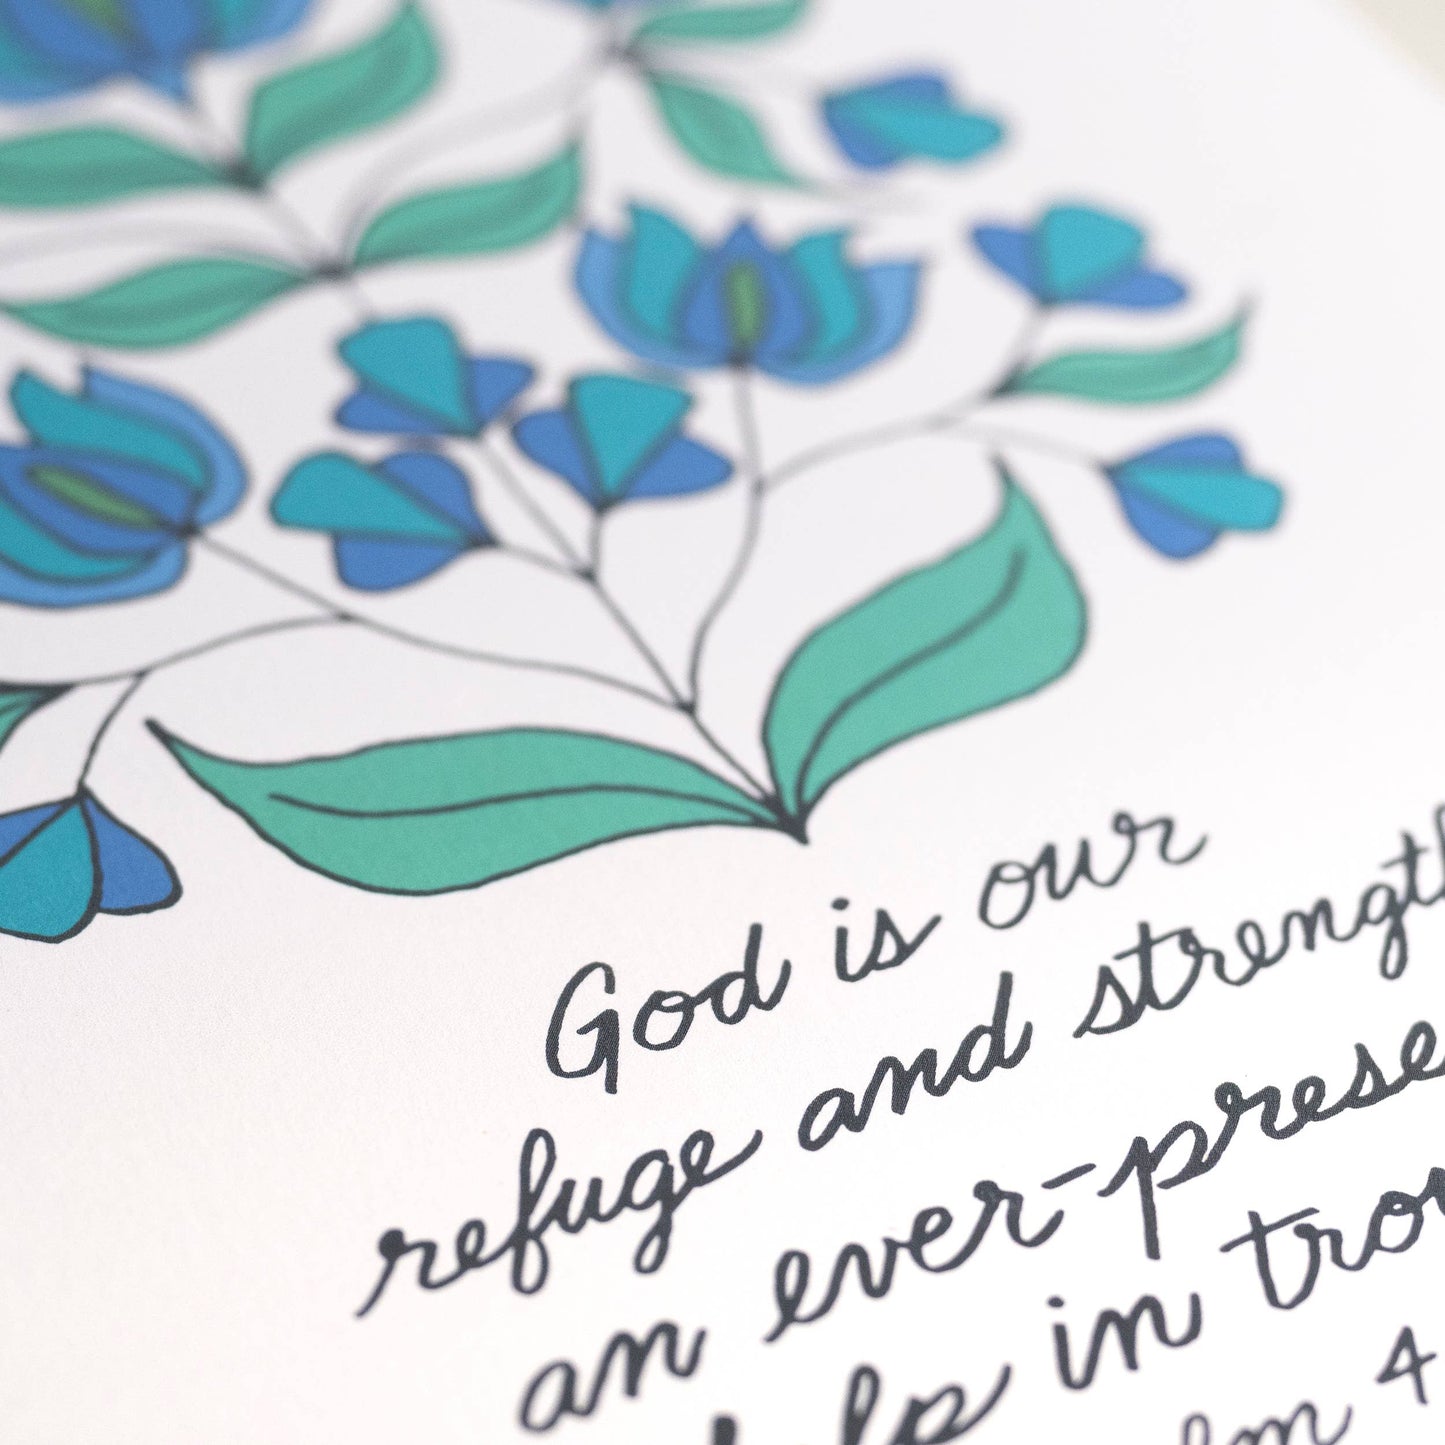 God is our
refuge and strength
an ever-prese
help in trou
lm 4